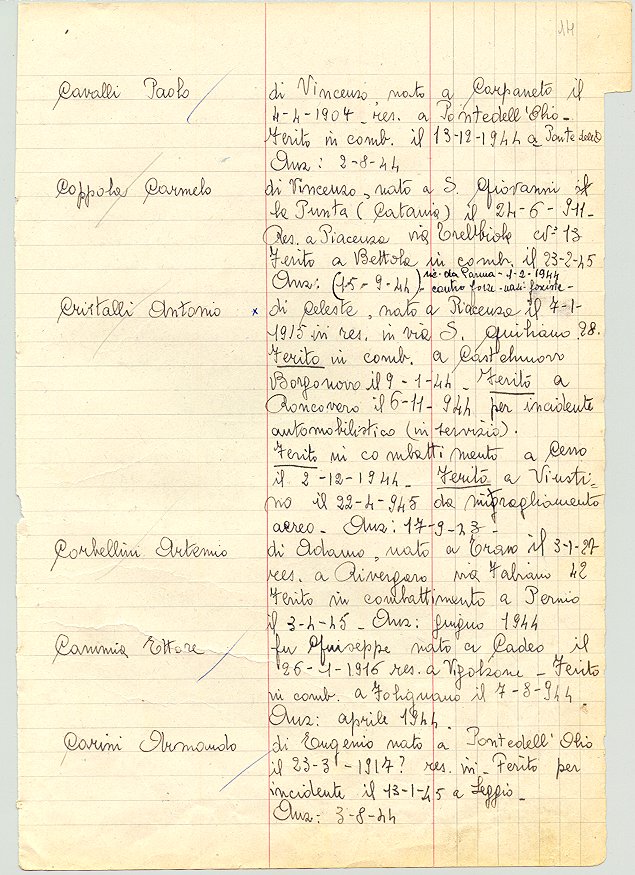 14
Cavalli Paolo di Vincenzo, nato a Carpaneto il
4-4-1904 - res. a Pontedell'Olio -
Ferito in comb. il 13-12-1944 a Ponte dell'O
Anz: 2-8-44
Coppola Carmelo di Vincenzo, nato a S. Giovanni il
la Punta (Catania) il 24-6-911-
Res. a Piacenza via Trebbiola N° 13
Ferito a Bettola in comb. il 23-2-45
Anz: (15-9-44) - ric. da Parma - 1-2-1944
contro forze nazi fasciste -
Cristalli Antonio x di Celeste, nato a Piacenza il 7-1-
1915 in res. in via S. Giuliano 28.
Ferito in comb. a Castelnuovo
Borgonovo il 9-1-44 - Ferito a
Roncovero il 6-11-944 per incidente
automobilistico (in servizio).
Ferito in combattimento a Cerro
il 2-12-1944 - Ferito a Viusti=
no il 22-4-945 da mitragliamento
aereo - Anz: 17-9-43 -
Corbellini Artemio di Adamo, nato a Travo il 3-1-27
res. a Rivergaro via Fabiano 42
Ferito in combattimento a Pernio
il 3-4-45 - Anz: giugno 1944
Cammia Ettore fu Giuseppe nato a Cadeo il
26-1-1916 res. a Vigolzone - Ferito
in comb. a Folignano il 7-8-944
Anz: aprile 1944
Carini Armando di Eugenio nato a Pontedell'Olio
il 23-3-1917? res. in - Ferito per
incidente il 13-1-45 a Leggio -
Anz: 3-8-44